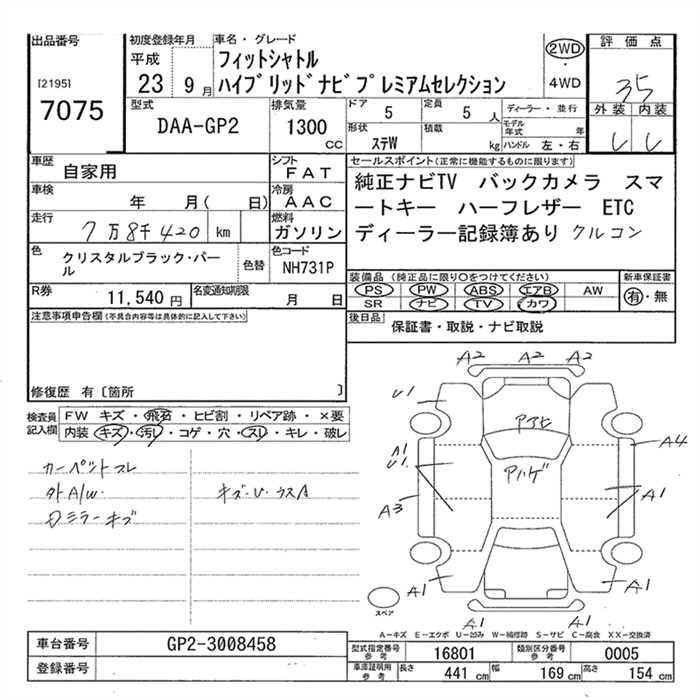 出品番号 初度登録年月 車名・グレード 評価点
[2195] 平成 フィットシャトル 2WD
7075 23 9月 ハイブリッドナビプレミアムセレクション 4WD 35
型式 排気量 ドア 定員 ディーラー・並行 外装 内装
DAA-GP2 1300 CC 5 5 人 モデル年式 年
形状 ステW 積載 kg ハンドル 左・右
車歴 自家用 シフト FAT セールスポイント(正常に機能するものに限ります)
車検 年 月( 日) 冷房 AAC 純正ナビTV バックカメラ スマ
走行 7万8千420 km 燃料 ガソリン ートキー ハーフレザー ETC
色 クリスタルブラック・パール 色替 色コード NH731P ディーラー記録簿あり クルコン
R券 11,540 円 名変通知期限 月 日 装備品(純正品に限り○をつけてください) 新車保証書
PS PW ABS エアB AW 有・無
SR ナビ TV カワ
注意事項申告欄(不具合内容等は具体的に記入して下さい) 後日品 保証書・取説・ナビ取説
修復歴 有〔箇所 〕
検査員記入欄 FW キズ・飛石・ヒビ割・リペア跡・×要
内装 キズ・汚レ・コゲ・穴・スレ・キレ・破レ
カーペットスレ
外A/W. キズ・U・ウスA
ロミラーキズ
A2 A2 A2
U1
アアヒ
A1 A4
U1 アハゲ
A3 A1
A1 A1
スペア A1
A-キズ E-エクボ U-凹み W-補修跡 S-サビ C-腐食 XX-交換済
車台番号 GP2-3008458 型式指定番号 参考 16801 類別区分番号 参考 0005
登録番号 車庫証明用 参考 長さ 441 cm 幅 169 cm 高さ 154 cm